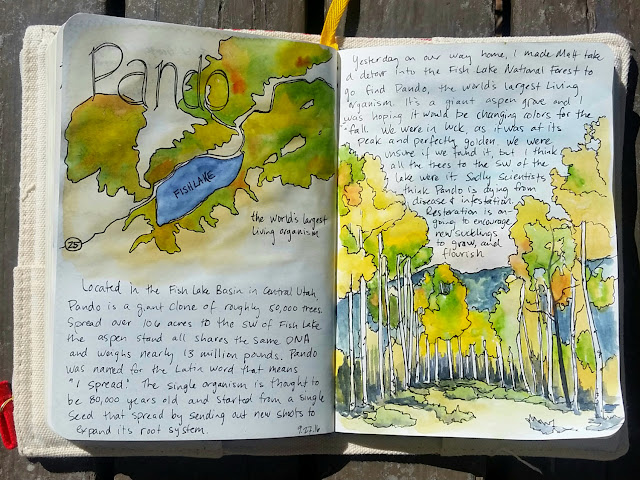 Pando
FISH LAKE
25
the world's largest
living organism
Located in the Fish Lake Basin in Central Utah,
Pando is a giant clone of roughly 50,000 trees.
Spread over 106 acres to the SW of Fish Lake
the aspen stand all shares the same DNA
and weighs nearly 13 million pounds. Pando
was named for the Latin word that means
"I spread." The single organism is thought to
be 80,000 years old and started from a single
seed that spread by sending out new shoots to
expand its root system.
9.27.16
Yesterday on our way home, I made Matt take
a detour into the Fish Lake National Forest to
go find Pando, the world's largest living
organism. It's a giant aspen grove and I
was hoping it would be changing colors for the
fall. We were in luck, as it was at its
peak and perfectly golden. We were
unsure if we found it, but I think
all the trees to the SW of the
lake were it. Sadly scientists
think Pando is dying from
disease & infestation.
Restoration is on-
going to encourage
new sucklings
to grow, and
flourish